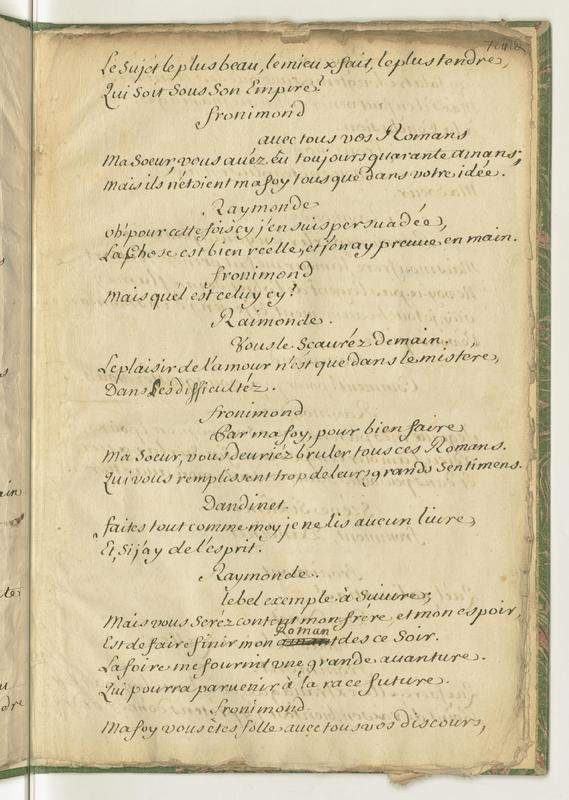 Le Sujét le plus beau, le mieux fait, le plus tendre,
Qui Soit Sous Son Empire?
fronimond
avec tous vos Romans
Ma Soeur vous avéz eu toujours quarante amans;
Mais ils n'étoient ma foy tous que dans votre idée.
Raymonde
oh! pour cette fois cy j'en suis persuadée,
La Chose est bien réelle, et j'en ay preuve en main.
fronimond
Mais quel est celuy cy?
Raimonde.
Vous le Scauréz demain.
Le plaisir de l'amour n'est que dans le mistére,
Dans Les difficultéz.
fronimond
Par ma foy, pour bien faire
Ma Soeur, vous devriéz bruler tous ces Romans.
Qui vous remplissent trop de leurs grands Sentimens.
Dandinet.
faites tout comme moy je ne lis aucun livre,
Et, Si j'ay de l'esprit.
Raymonde.
le bel exemple à Suivre;
Mais vous Seréz content mon frére, et mon espoir,
Roman
Est de faire finir mon amant des ce Soir.
La foire me fournit une grande avanture.
Qui pourra parvenir à la race future.
fronimond
Ma foy vous étes folle avec tous vos discours,